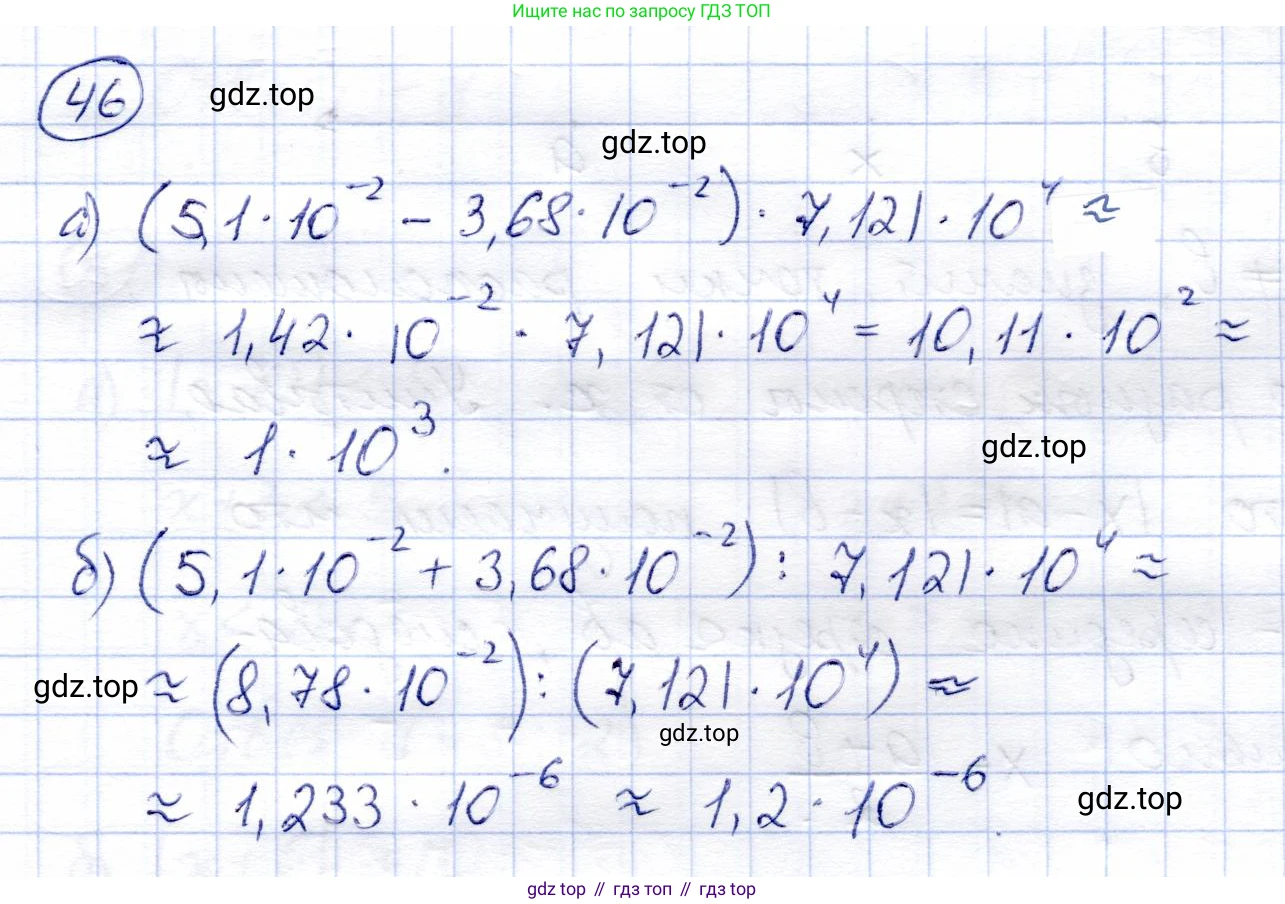 Ищите нас по запросу ГДЗ ТОП
46
gdz.top
gdz.top
а) (5,1 · 10⁻² − 3,68 · 10⁻²) · 7,121 · 10⁴ ≈
≈ 1,42 · 10⁻² · 7,121 · 10⁴ = 10,11 · 10² ≈
≈ 1 · 10³.
gdz.top
б) (5,1 · 10⁻² + 3,68 · 10⁻²) : 7,121 · 10⁴ ≈
gdz.top
≈ (8,78 · 10⁻²) : (7,121 · 10⁴) ≈
gdz.top
≈ 1,233 · 10⁻⁶ ≈ 1,2 · 10⁻⁶.
gdz.top
gdz top // гдз топ // гдз top